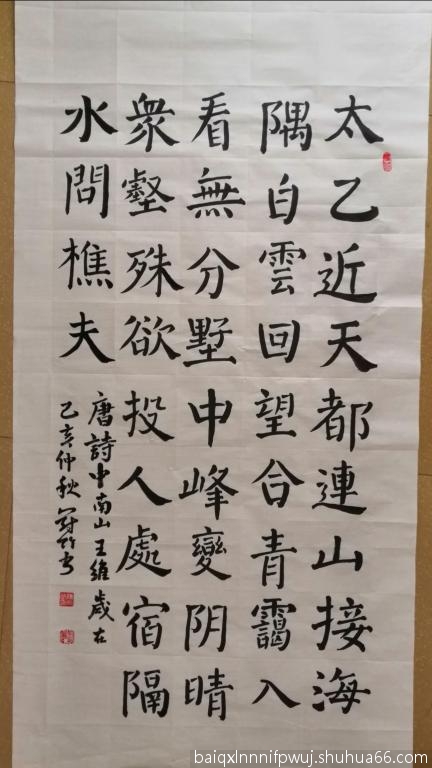 太乙近天都連山接海
隅白雲回望合青靄入
看無分墅中峰變阴晴
衆壑殊欲投人處宿隔
水問樵夫
唐詩中南山王維歲在
乙亥仲秋
baiqxlnnnifpwuj.shuhua66.com